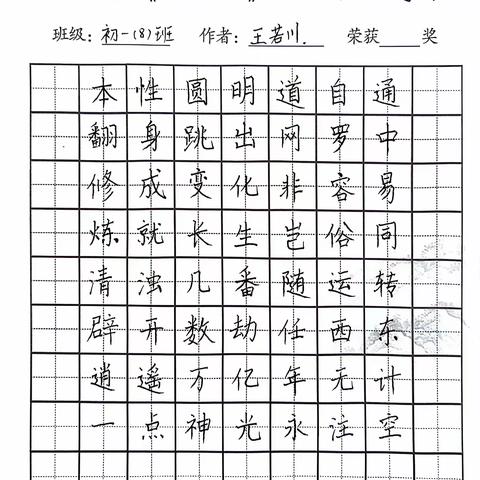 班级：初一(8)班 作者：王若川. 荣获 奖
本性圆明道自通
翻身跳出网罗中
修成变化非容易
炼就长生岂俗同
清浊几番随运转
辟开数劫任西东
逍遥万亿年无计
一点神光永注空